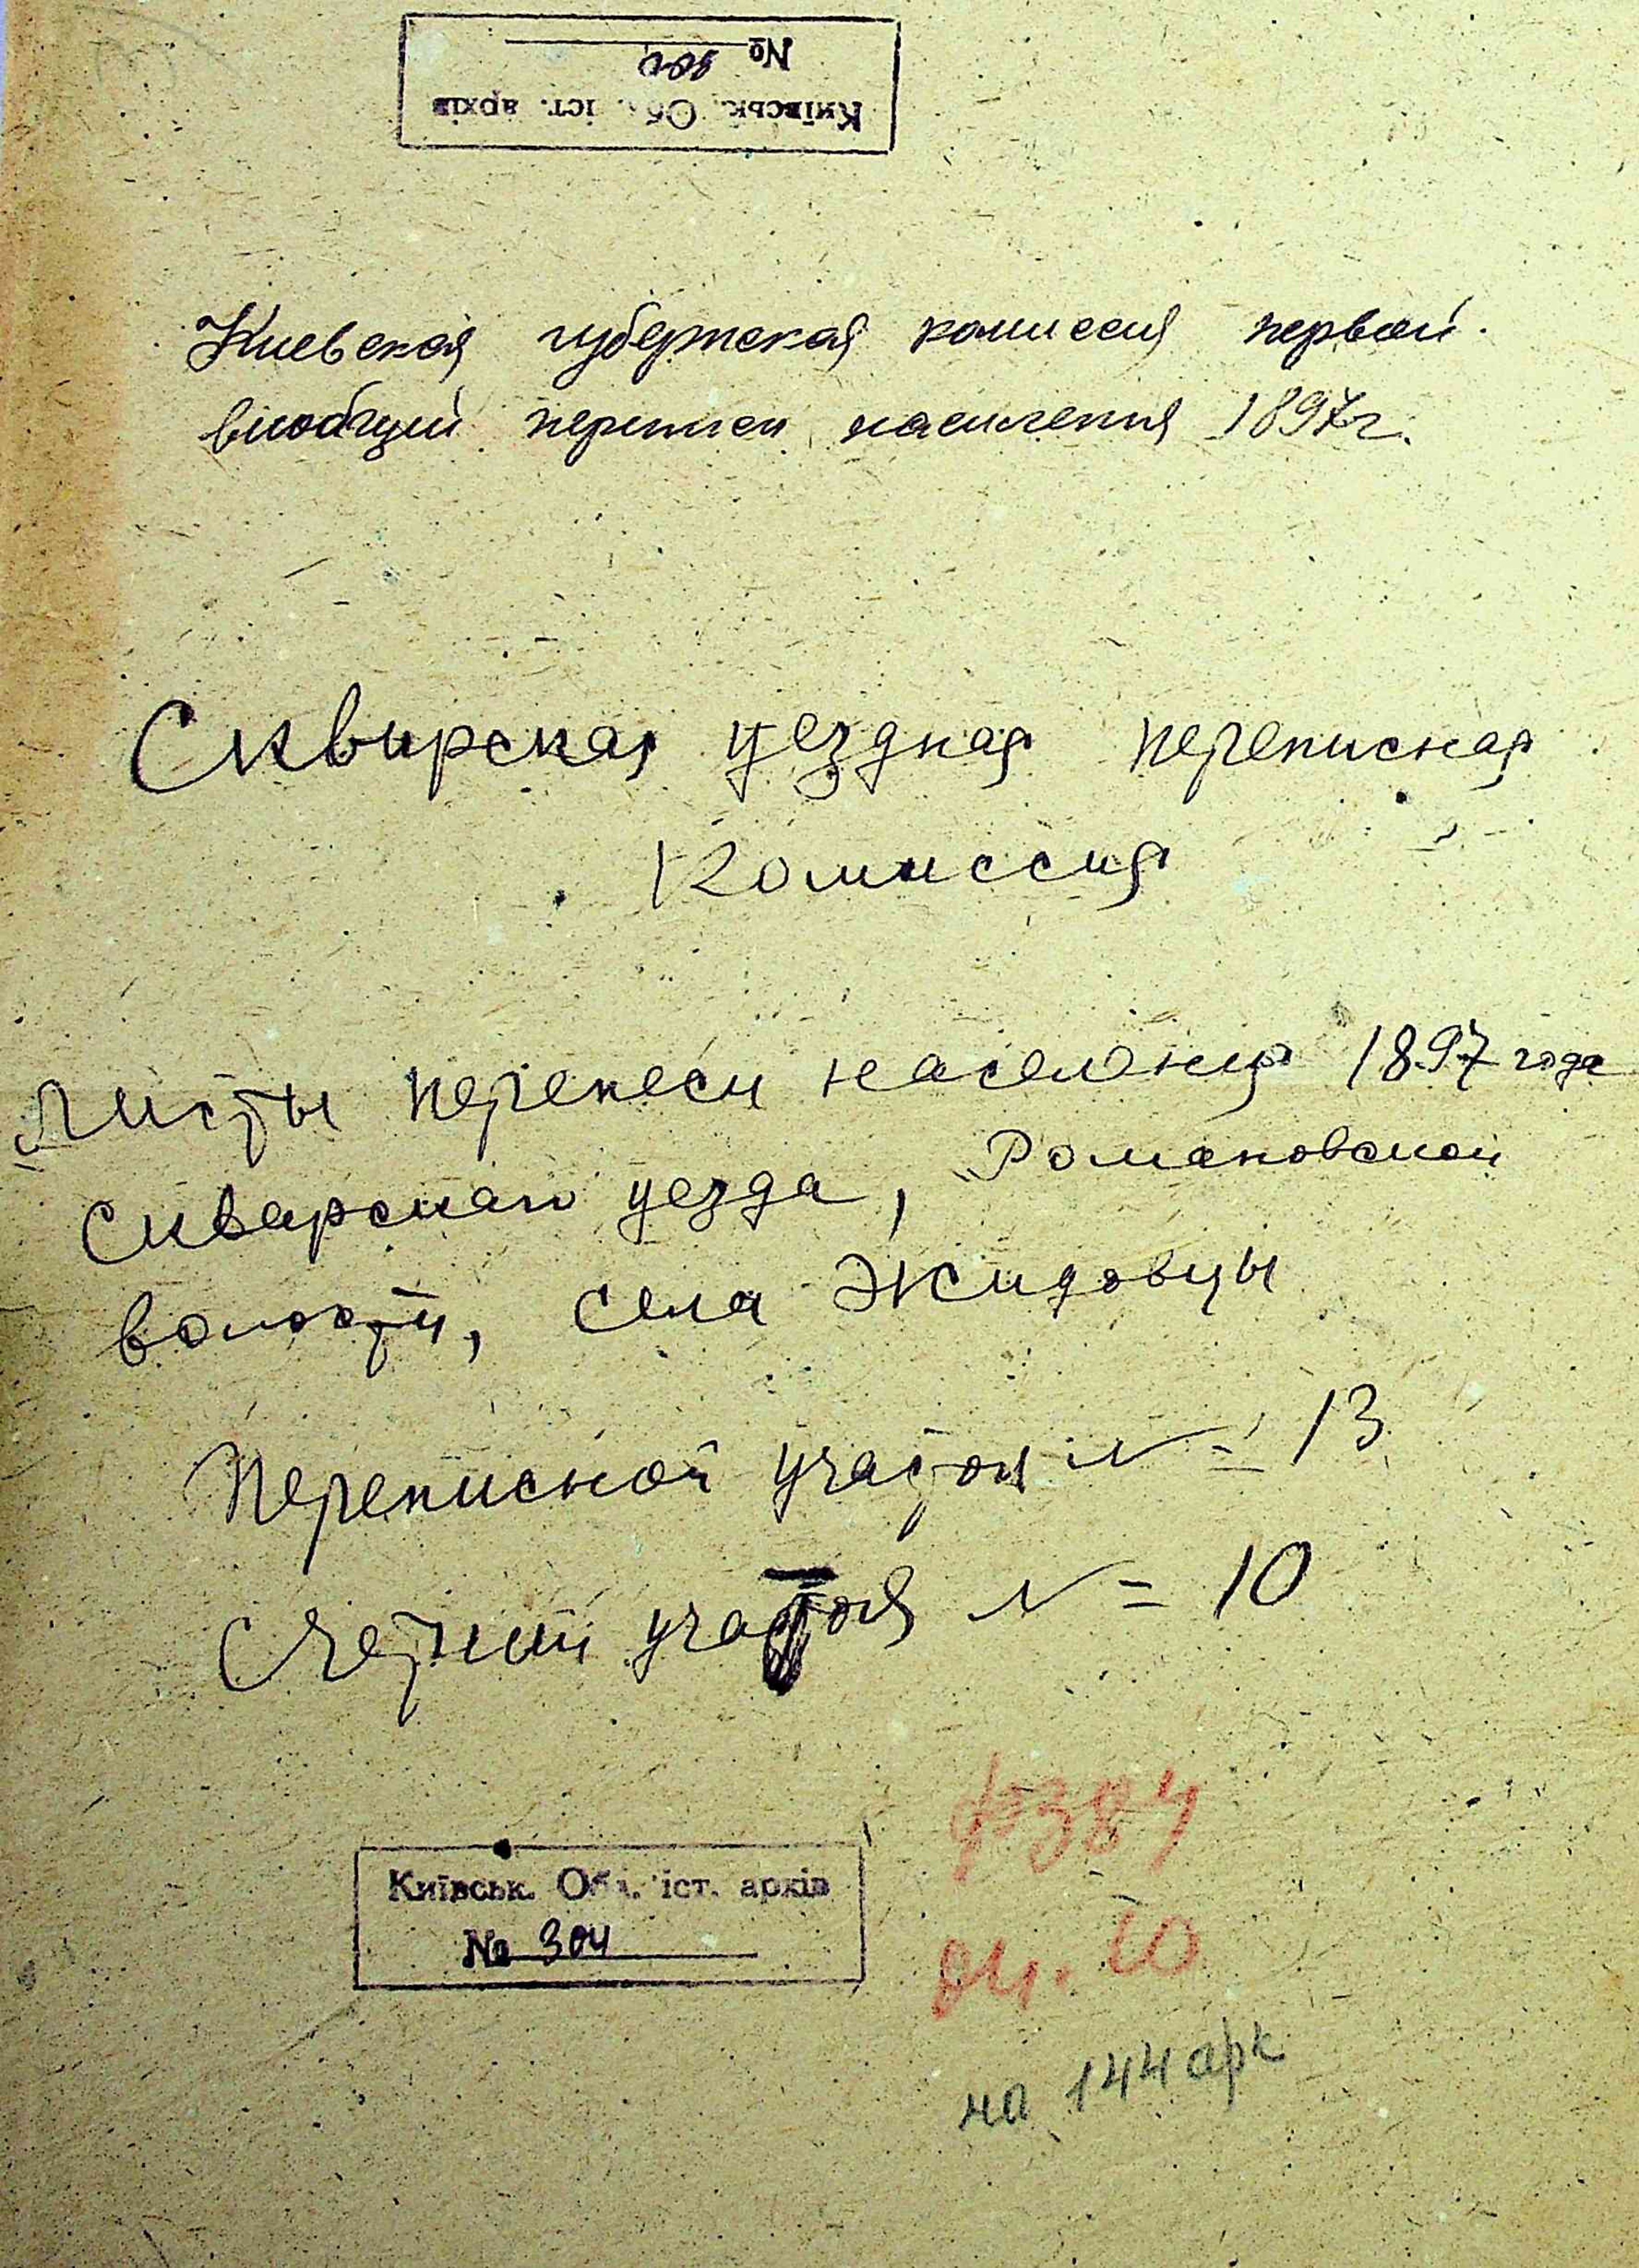 Київськ. Обл. іст. архів
№
Киевская губернская комиссия первой
всеобщей переписи населения 1897г.
Сквирская уездная переписная
Комиссия
Листы переписи населения 1897 года
Сквирскаго уезда, Романовской
волости, села Жидовцы
Переписной участок № 13
Счетный участок № 10
ф 384
оп. 10
Київськ. Обл. іст. архів
№ 304
на 144 арк